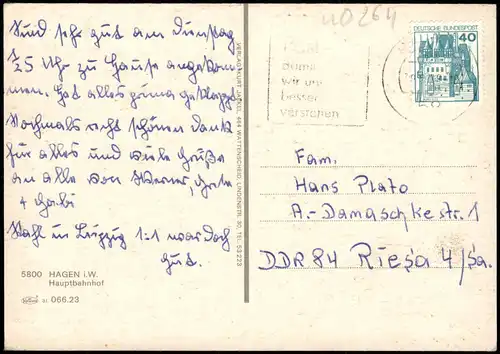 Sind sehr gut am Dienstag
1/25 Uhr zu Hause angekom-
men. Hat alles prima geklappt.
Nochmals recht schönen Dank
für alles und viele Grüße
an alle von Werner,
+ Gabi
in Leipzig 1:1 war doch
gut.
5800 HAGEN i.W.
Hauptbahnhof
066.23
VERLAG KURT 464 WATTENSCHEID, LINDENSTR. TEL. 53223
40264
damit
wir uns
besser
verstehen
DEUTSCHE BUNDESPOST
40
Fam.
Hans Plato
A.-Damaschkestr. 1
DDR 84 Riesa 4/Sa.